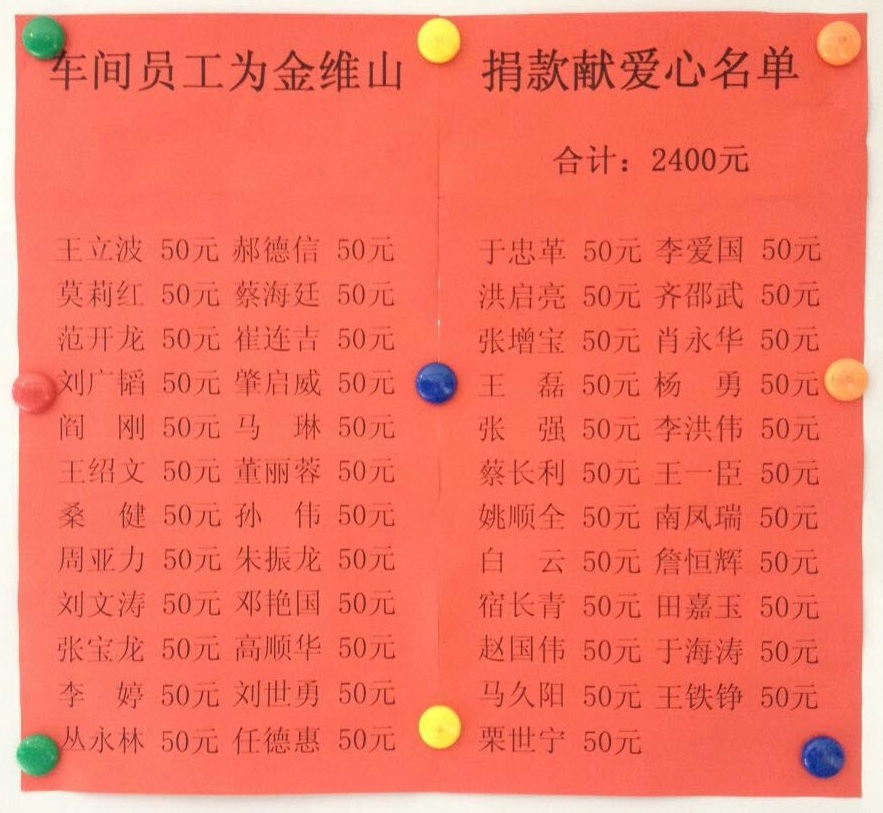 车间员工为金维山 捐款献爱心名单
合计：2400元
王立波 50元 郝德信 50元 于忠革 50元 李爱国 50元
莫莉红 50元 蔡海廷 50元 洪启亮 50元 齐邵武 50元
范开龙 50元 崔连吉 50元 张增宝 50元 肖永华 50元
刘广韬 50元 肇启威 50元 王 磊 50元 杨 勇 50元
阎 刚 50元 马 琳 50元 张 强 50元 李洪伟 50元
王绍文 50元 董丽蓉 50元 蔡长利 50元 王一臣 50元
桑 健 50元 孙 伟 50元 姚顺全 50元 南凤瑞 50元
周亚力 50元 朱振龙 50元 白 云 50元 詹恒辉 50元
刘文涛 50元 邓艳国 50元 宿长青 50元 田嘉玉 50元
张宝龙 50元 高顺华 50元 赵国伟 50元 于海涛 50元
李 婷 50元 刘世勇 50元 马久阳 50元 王铁铮 50元
丛永林 50元 任德惠 50元 栗世宁 50元